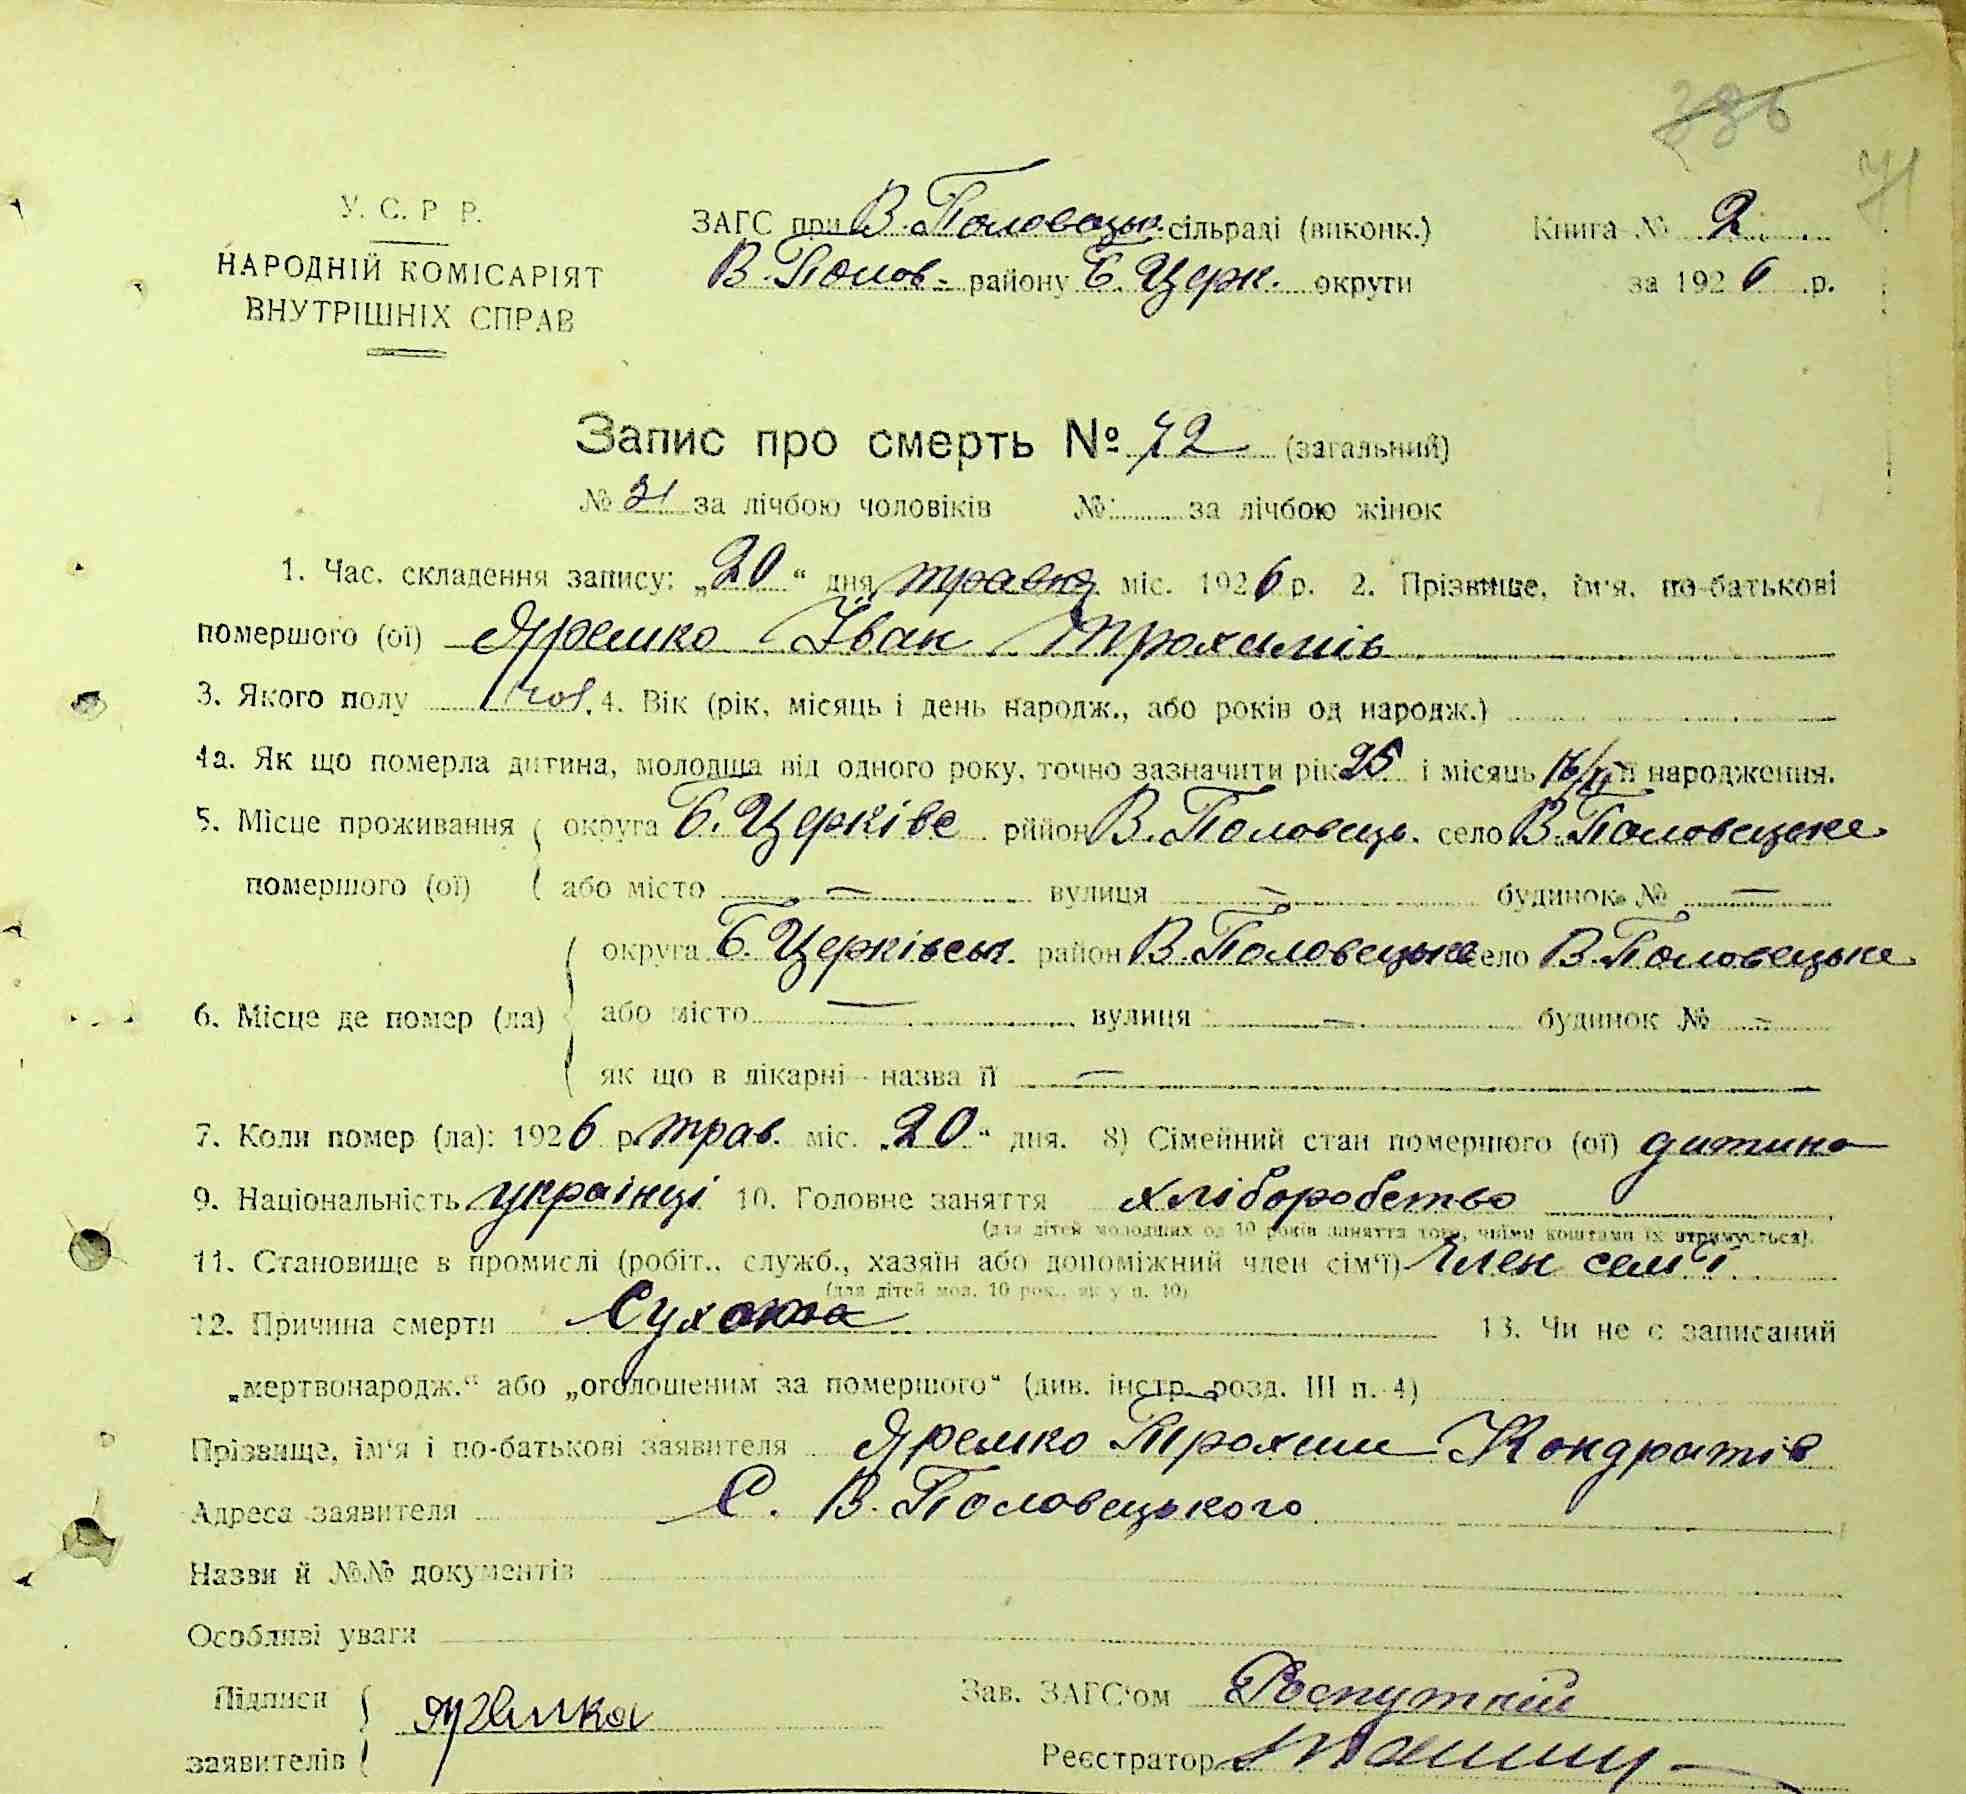 386
71
У. С. Р Р.
НАРОДНІЙ КОМІСАРІЯТ
ВНУТРІШНІХ СПРАВ
ЗАГС при В. Половецьк. сільраді (виконк.)
В. Полов- району Б. Церк. округи
Книга № 2
за 1926 р.
Запис про смерть № 72 (загальний)
№ 31 за лічбою чоловіків №: за лічбою жінок
1. Час. складення запису: „20“ дня травня міс. 1926 р. 2. Прізвище, ім'я, по-батькові
помершого (ої) Яремко Іван Трохимів
3. Якого полу чол. 4. Вік (рік, місяць і день народж., або років од народж.)
4а. Як що померла дитина, молодша від одного року, точно зазначити рік 25 і місяць її народження.
5. Місце проживання округа Б. Церківс район В. Половець. село В. Половецьке
помершого (ої) або місто — вулиця — будинок № —
округа Б. Церківськ. район В. Половецьке село В. Половецьке
6. Місце де помер (ла) або місто — вулиця — будинок № —
як що в лікарні—назва її —
7. Коли помер (ла): 1926 р. трав. міс. „20“ дня. 8) Сімейний стан помершого (ої) дитина
9. Національність українці 10. Головне заняття хліборобство
(для дітей молодших од 10 років заняття того, чиїми коштами їх утримується).
11. Становище в промислі (робіт., служб., хазяїн або допоміжний член сім'ї) Член сем'ї
(для дітей мол. 10 рок., як у п. 10)
12. Причина смерти 13. Чи не є записаний
„мертвонародж.“ або „оголошеним за помершого“ (див. інстр. розд. III п. 4)
Прізвище, ім'я і по-батькові заявителя Яремко Трохим Кондратів
Адреса заявителя С. В. Половецького
Назви й №№ документів
Особливі уваги
Підписи Зав. ЗАГС'ом Роспутній
заявителів Реєстратор